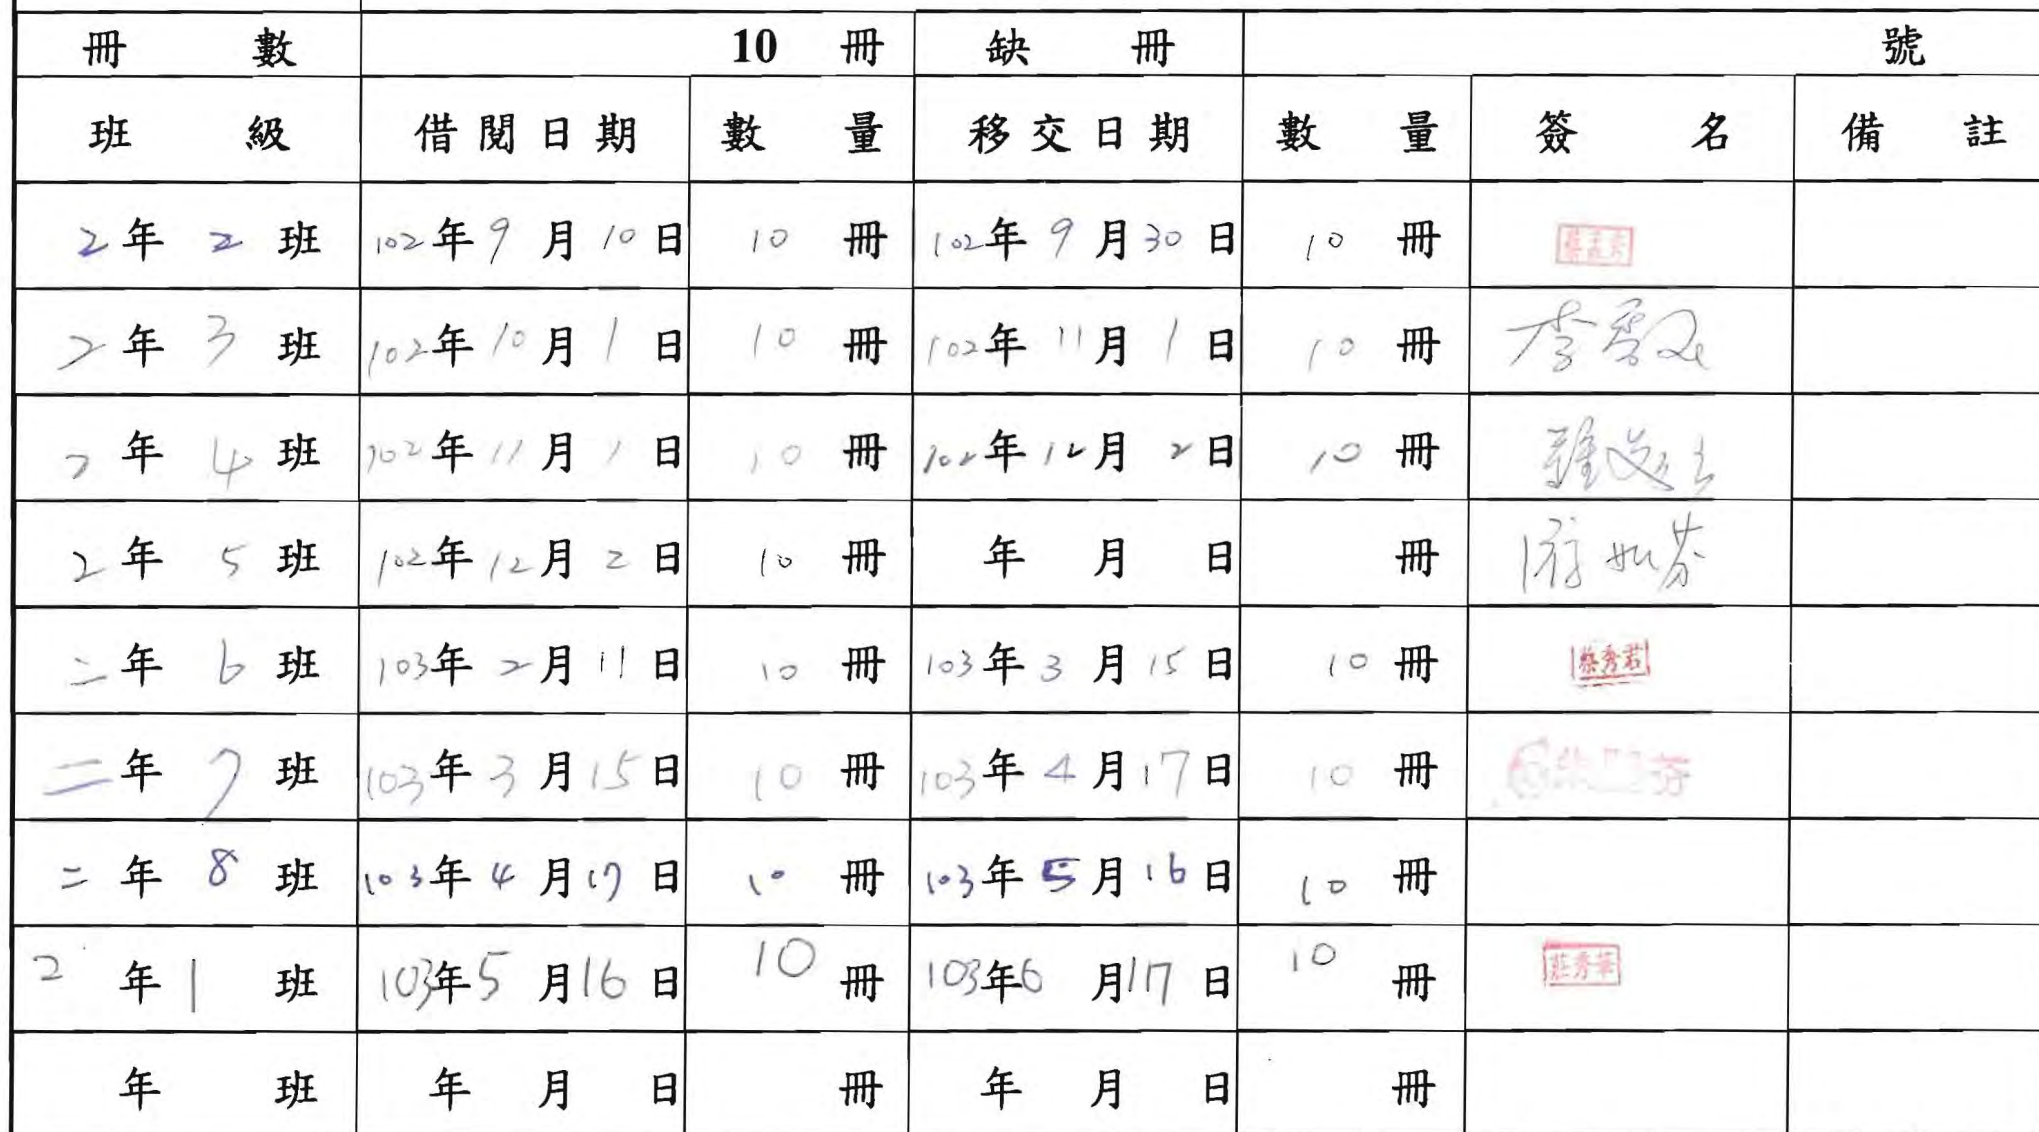 冊數 10 冊 缺冊 號
班級 借閱日期 數量 移交日期 數量 簽名 備註
2年2班 102年9月10日 10冊 102年9月30日 10冊
2年3班 102年10月1日 10冊 102年11月1日 10冊 李
2年4班 102年11月1日 10冊 102年12月2日 10冊
2年5班 102年12月2日 10冊 年月日 冊 游如芬
二年6班 103年2月11日 10冊 103年3月15日 10冊 蔡秀若
二年7班 103年3月15日 10冊 103年4月17日 10冊 芬
二年8班 103年4月17日 10冊 103年5月16日 10冊
2年1班 103年5月16日 10冊 103年6月17日 10冊 莊秀華
年班 年月日 冊 年月日 冊